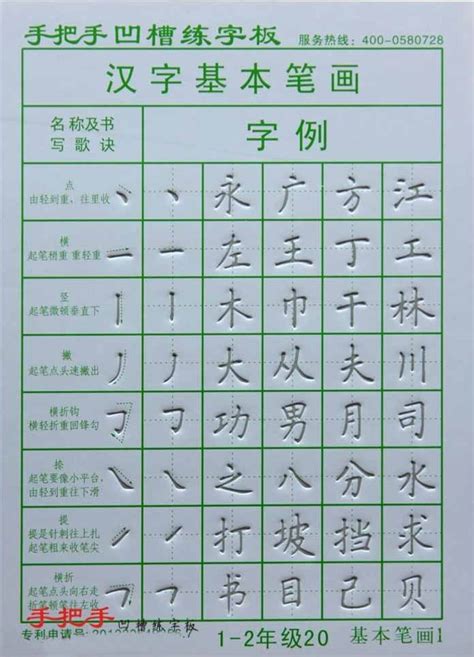 手把手凹槽练字板 服务热线：400-0580728
汉字基本笔画
名称及书写歌诀 字例
点
由轻到重，往里收 丶 丶 永 广 方 江
横
起笔稍重 重轻重 一 一 左 王 丁 工
竖
起笔微顿垂直下 丨 丨 木 巾 干 林
撇
起笔点头速撇出 丿 丿 大 从 夫 川
横折钩
横轻折重回锋勾 𠃌 𠃌 功 男 月 司
捺
起笔要像小平台，
由轻到重往下滑 ㇏ ㇏ 之 八 分 水
提
提是针刺往上扎
起笔粗来收笔尖 ㇀ ㇀ 打 坡 挡 求
横折
起笔点头向右走
折笔顿笔往左收 𠃍 𠃍 书 目 己 贝
手把手 凹槽练字板
专利申请号 1-2年级20 基本笔画1